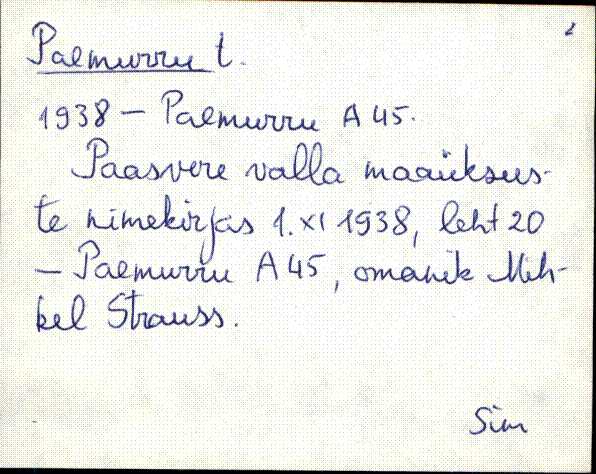 2
Paemurru t.
1938 – Paemurru A 45.
Paasvere valla maaüksus-
te nimekirjas 1. XI 1938, leht 20
– Paemurru A 45, omanik Mih-
kel Strauss.
Sim